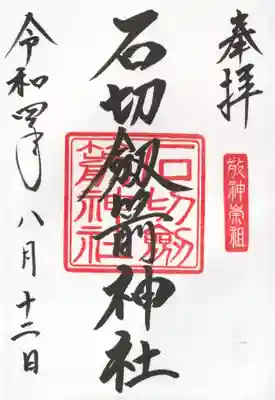 奉拝
敬神崇祖
石切劔箭神社
石切劔
箭神社
令和四年八月十二日